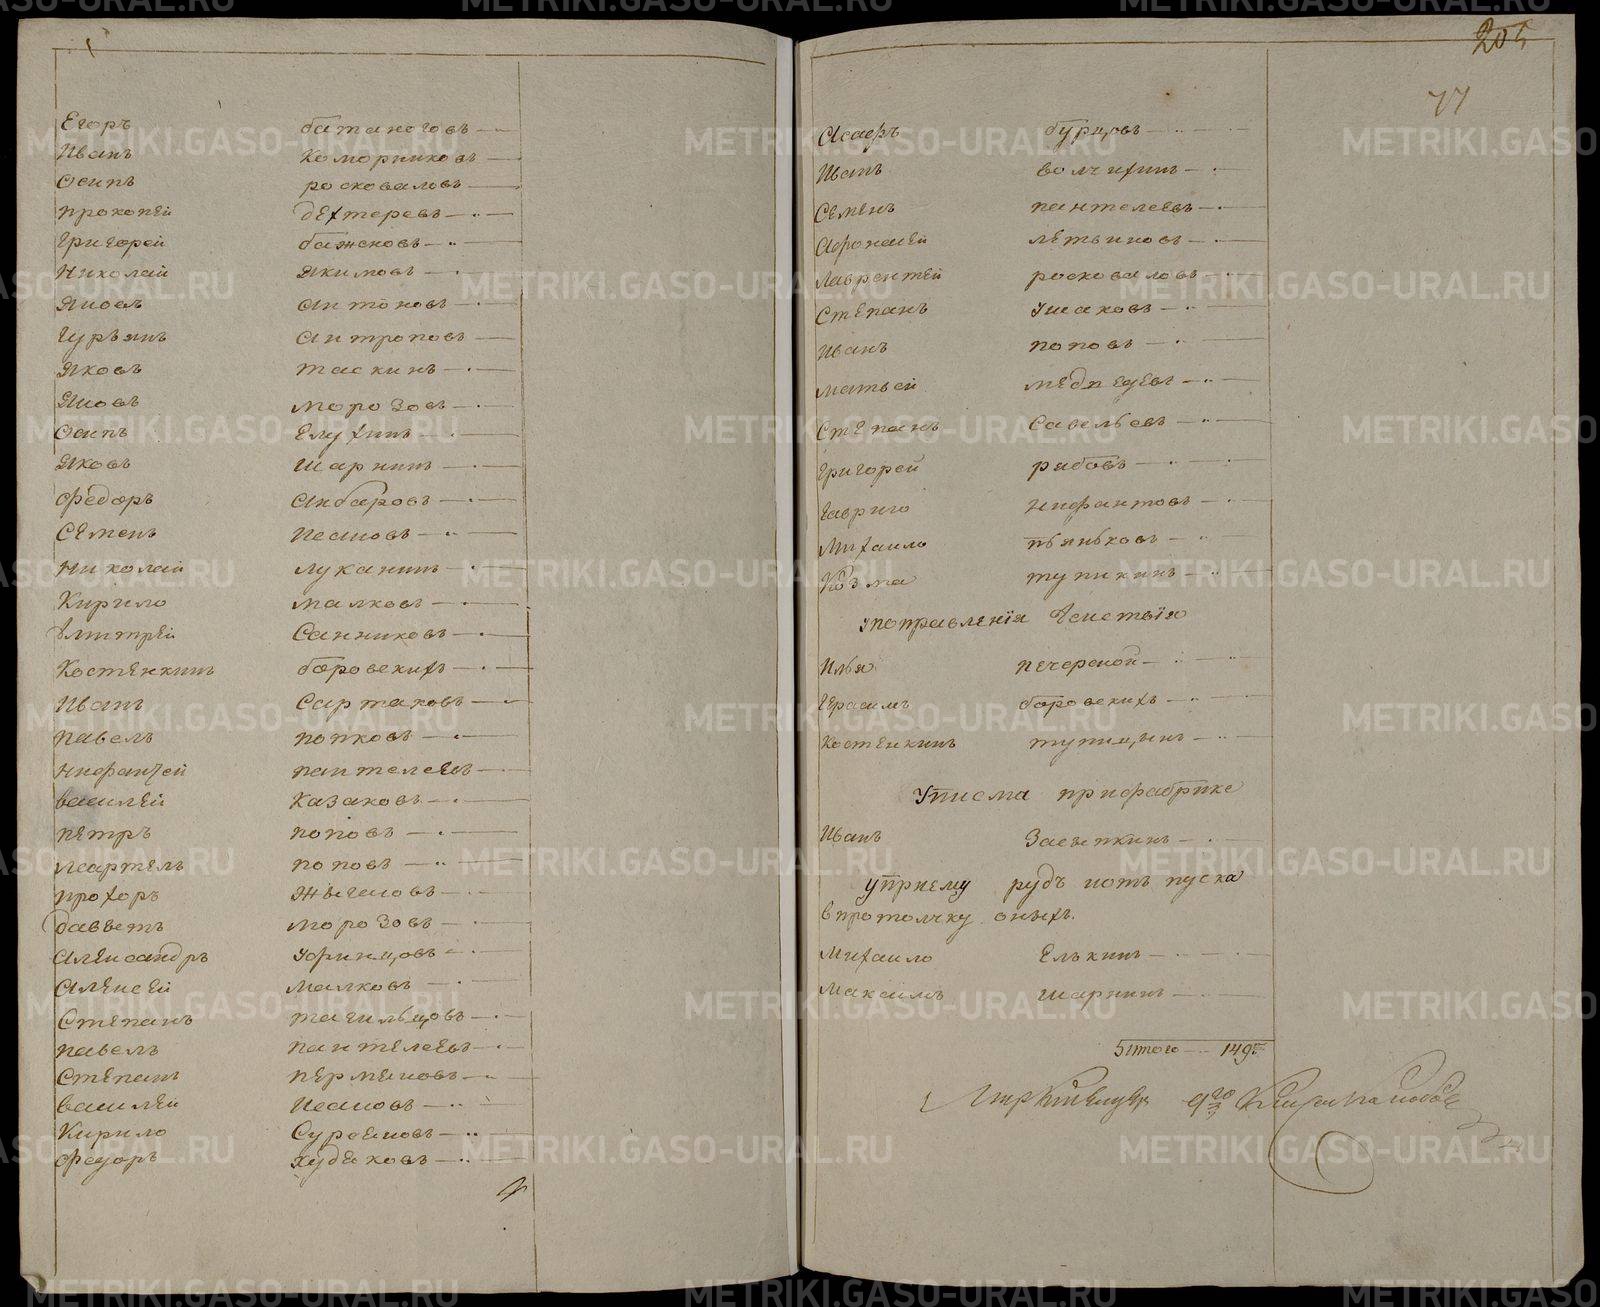 Егоръ батаноговъ
Иванъ Коморниковъ
Осипъ росковаловъ
прокопей дехтеревъ
Григорей баженовъ
Николай якимовъ
антоновъ
Гурьянъ антроповъ
яковъ таскинъ
яковъ морозовъ
Осипъ Елухинъ
яковъ шарнинъ
Федоръ анбаровъ
Семенъ Ивановъ
Николай луканинъ
Кирило малковъ
Дмитрей Санниковъ
Костенкинъ боровскихъ
Иванъ Сартаковъ
павелъ попковъ
пантелеевъ
василей Казаковъ
петръ поповъ
поповъ
прохоръ
морозовъ
александръ уфинцовъ
алексей малковъ
Степанъ тагильцовъ
павелъ пантелеевъ
Степанъ перменовъ
василей Ивановъ
Кирило
Федоръ худяковъ
205
77
Асафъ бурцовъ
Иванъ волчихинъ
Семенъ пантелеевъ
Афонасей летвиновъ
Лаврентей росковаловъ
Степанъ ушаковъ
Иванъ поповъ
матвей медведевъ
Степанъ Савельевъ
Григорей рабовъ
Гаврило нифантовъ
Михаило пьяньковъ
Козма тупикинъ
уисправления
Илья печерской
Герасимъ боровскихъ
Костенкинъ тупицынъ
Уписма прифабрике
Иванъ Засыпкинъ
уприему рудъ иотъ пуска
впротолчку оныхъ.
Михаило Елькинъ
Максимъ шарнинъ
Итого 149
METRIKI.GASO-URAL.RU